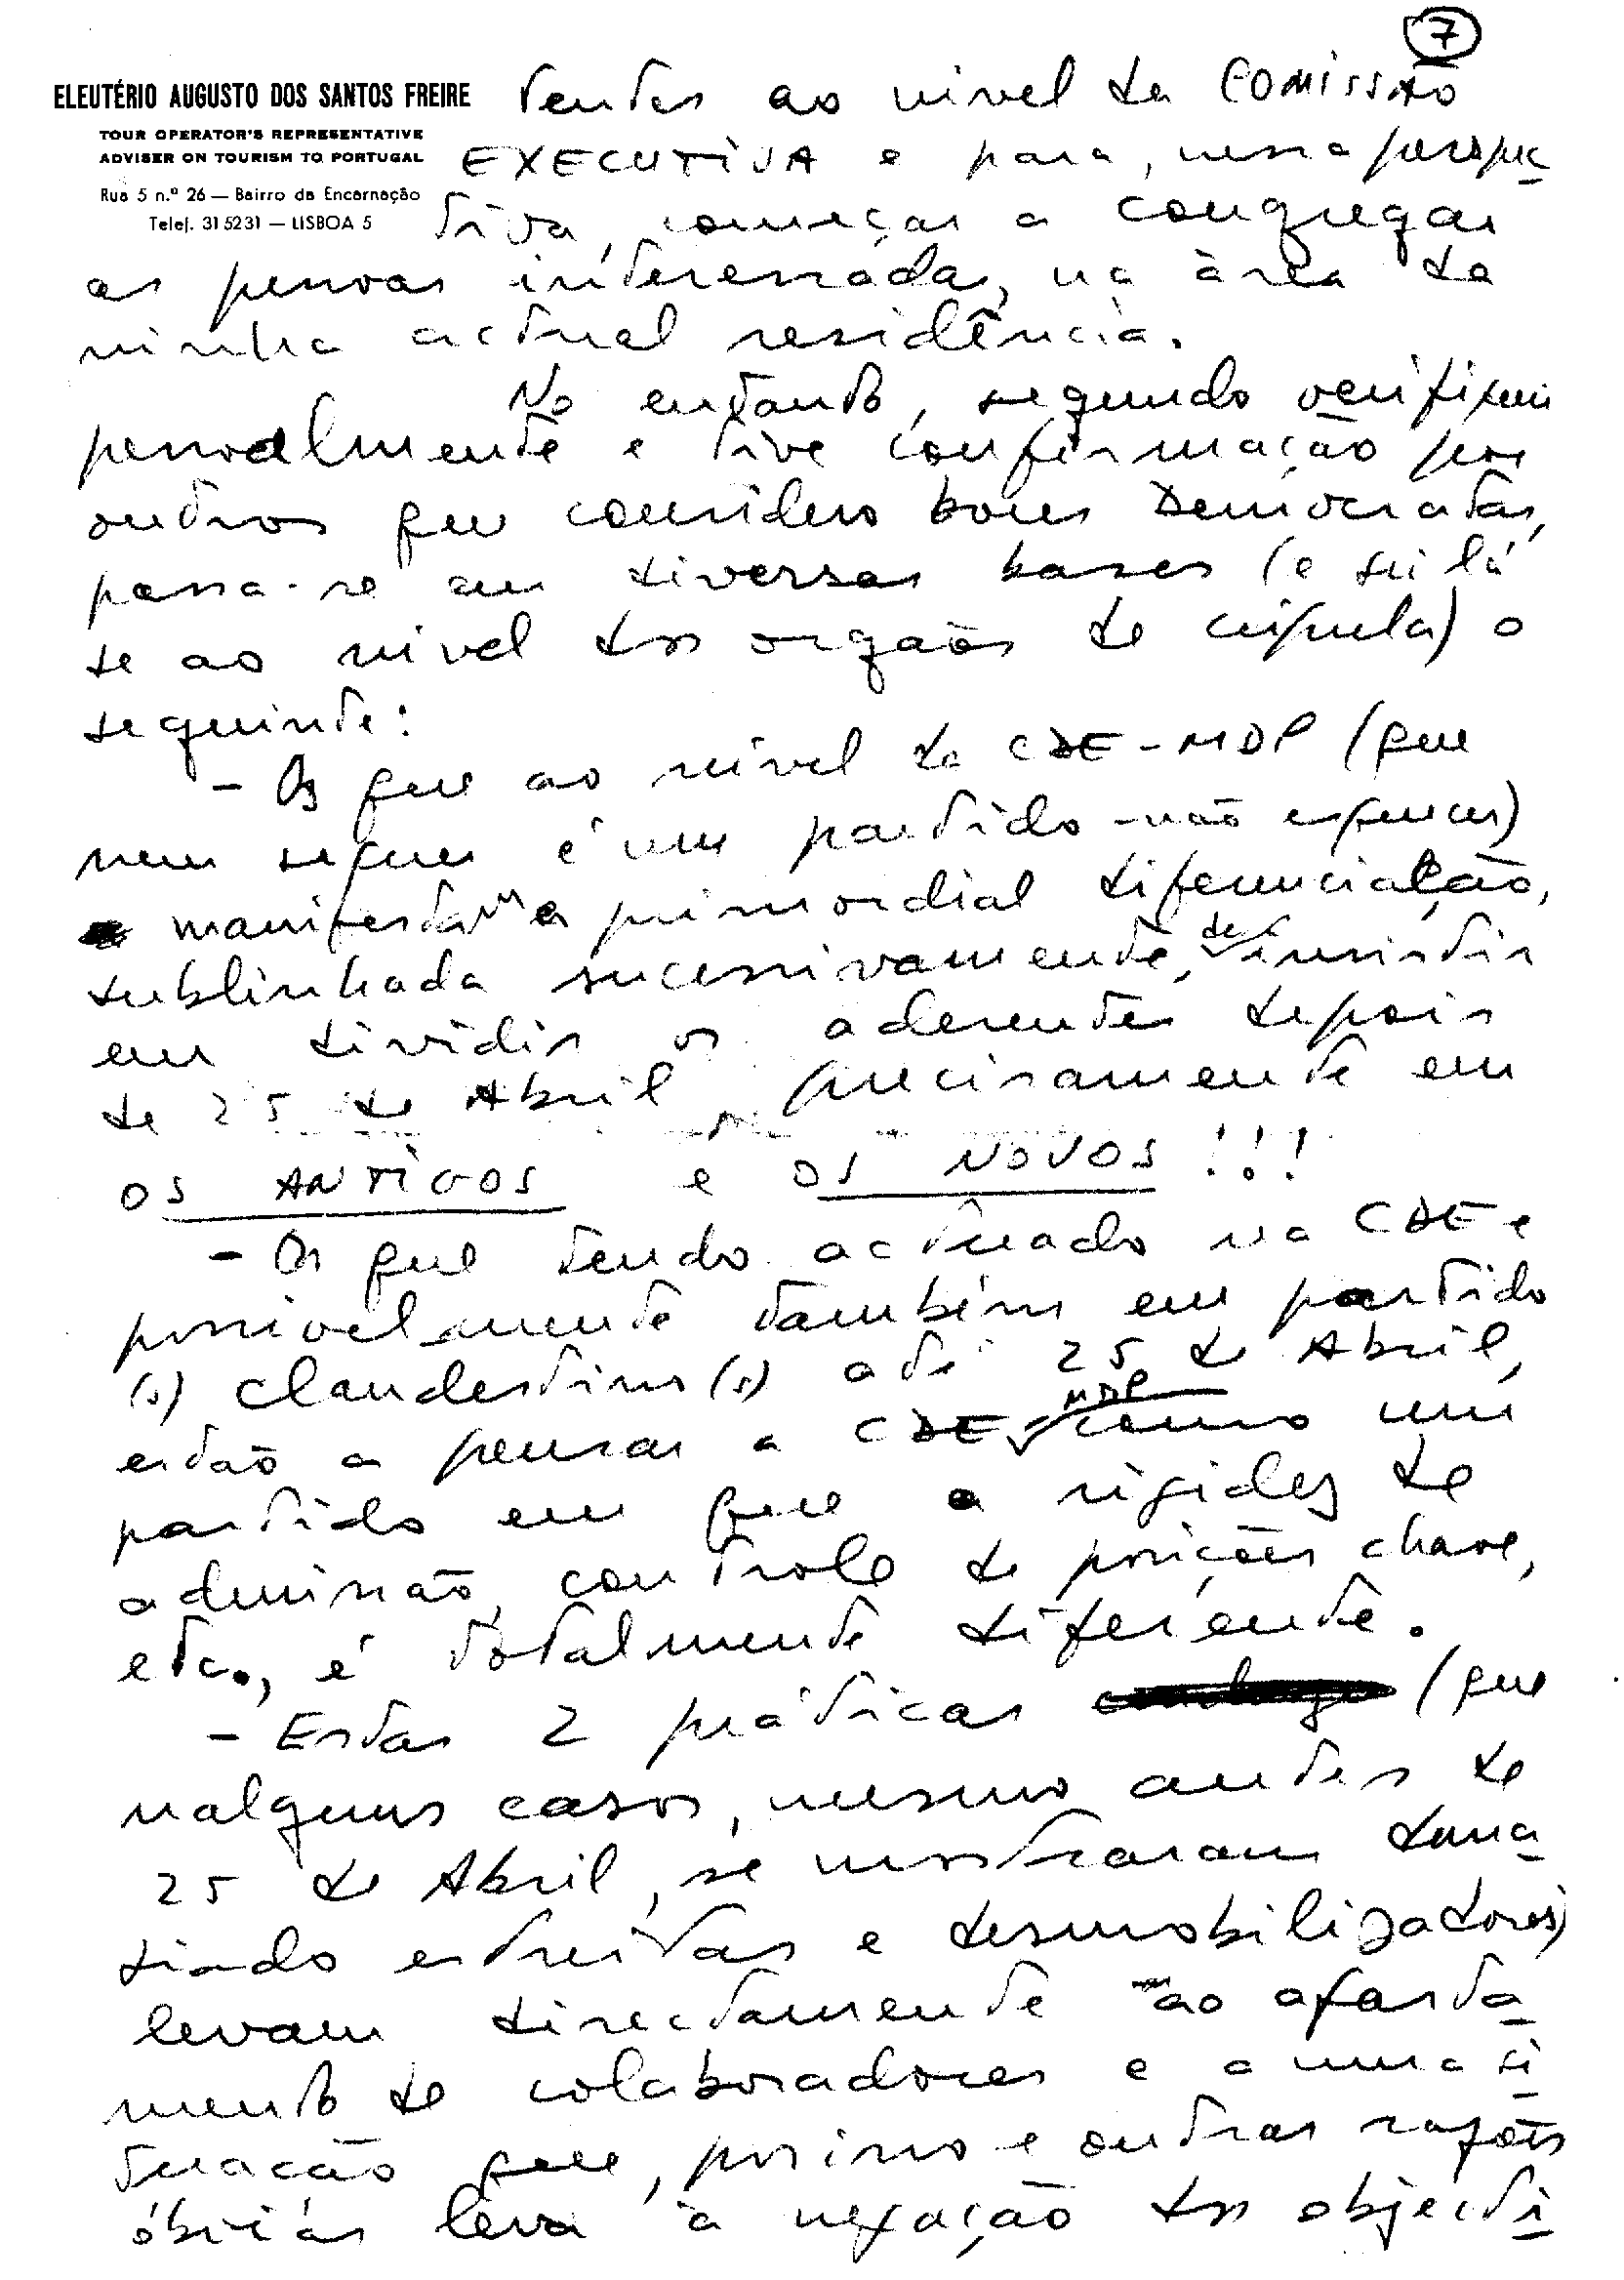 7
ELEUTÉRIO AUGUSTO DOS SANTOS FREIRE
TOUR OPERATOR'S REPRESENTATIVE
ADVISER ON TOURISM TO PORTUGAL
Rua 5 n.º 26 — Bairro da Encarnação
Telef. 315231 — LISBOA 5
dentes ao nivel da COMISSÃO
EXECUTIVA e para, nessa perspec
tiva, começar a congregar
as pessoas interessadas, na àrea da
minha actual residência.
No entanto, segundo verifiquei
pessoalmente e tive confirmação por
outros que considero bons Democratas,
passa-se em diversas bases (e sei lá
se ao nivel dos orgãos de cúpula) o
seguinte:
- Os que ao nivel da CDE-MDP (que
nem sequer é um partido - não esquecer)
manifestam a primordial diferenciação,
sublinhada sucessivamente, de insistir
em dividir os aderentes depois
de 25 de Abril precisamente em
OS ANTIGOS e OS NOVOS !!!
- Os que tendo actuado na CDE e
possivelmente também em partido
(s) clandestino(s) até 25 de Abril,
estão a pensar a CDE MDP como um
partido em que a rigidez de
admissão, controle de posições chave,
etc., é totalmente diferente.
- Estas 2 práticas (que
nalguns casos, mesmo antes de
25 de Abril, se mostraram dema
siado estreitas e desmobilizadoras)
levam directamente ao afasta
mento de colaboradores e a uma si
tuação que, por isso e outras razões
óbvias leva à negação dos objecti